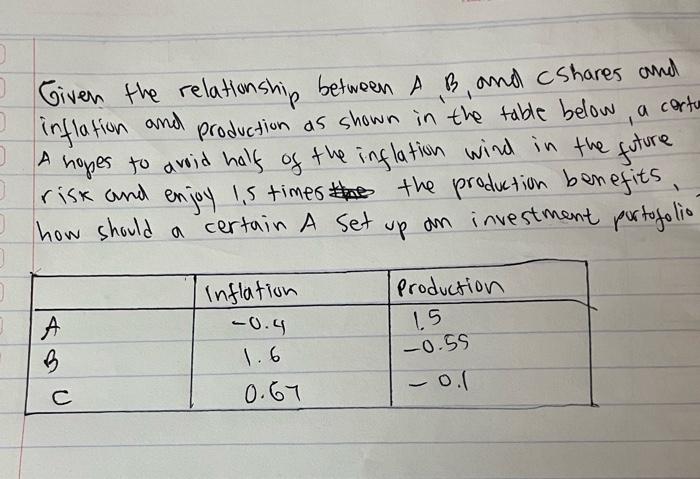 Given the relationship between A, B, and C shares and
inflation and production as shown in the table below, a certa
A hopes to avoid half of the inflation wind in the future
risk and enjoy 1.5 times the production benefits,
how should a certain A set up an investment portofolio
Inflation Production
A -0.4 1.5
B 1.6 -0.55
C 0.67 -0.1